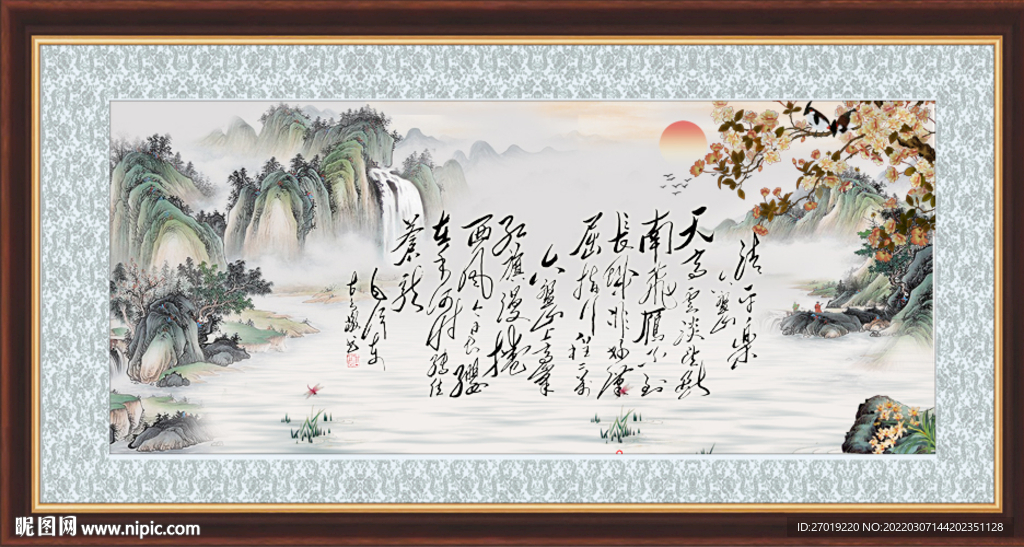 清平樂
六盤山
天高雲淡望斷
南飛雁不到
長城非好漢
屈指行程二万
六盤山上高峰
紅旗漫捲
西風今日長纓
在手何時縛住
蒼龍
毛澤東
昵图网 www.nipic.com
ID:27019220 NO:20220307144202351128